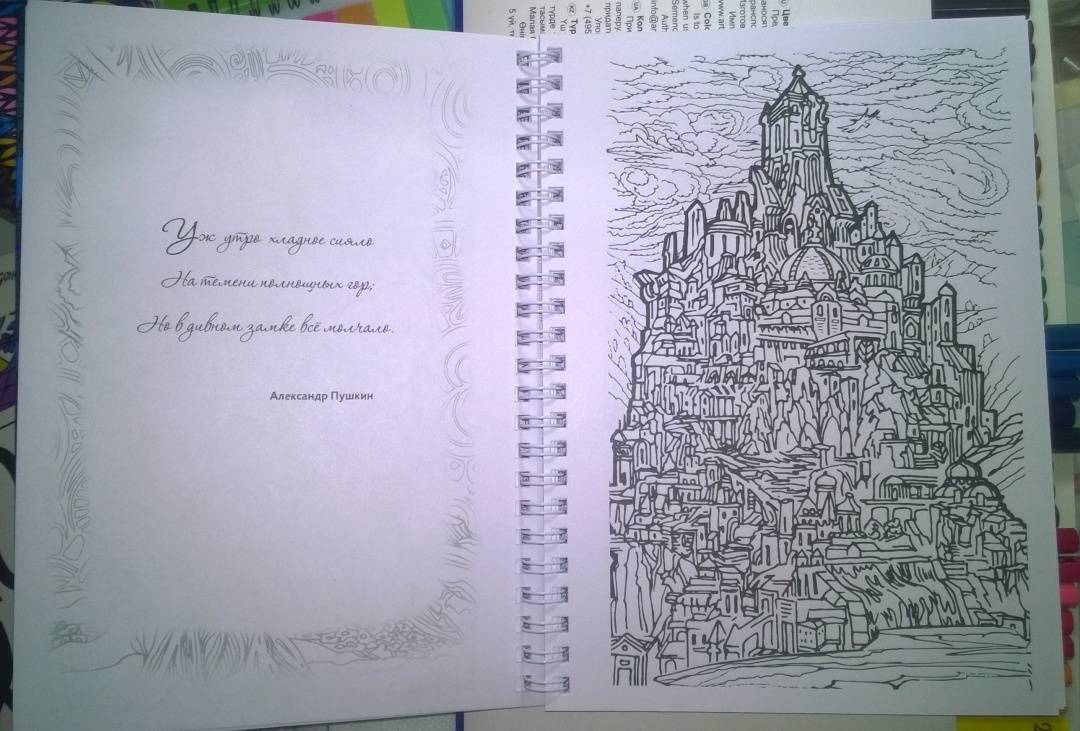 Уж утро хладное сияло
На темени полнощных гор;
Но в дивном замке всё молчало.
Александр Пушкин